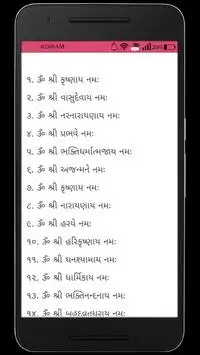 ૧. ૐ શ્રી કૃષ્ણાય નમઃ
૨. ૐ શ્રી વાસુદેવાય નમઃ
૩. ૐ શ્રી નરનારાયણાય નમઃ
૪. ૐ શ્રી પ્રભવે નમઃ
૫. ૐ શ્રી ભક્તિધર્માત્મજાય નમઃ
૬. ૐ શ્રી અજન્મને નમઃ
૭. ૐ શ્રી કૃષ્ણાય નમઃ
૮. ૐ શ્રી નારાયણાય નમઃ
૯. ૐ શ્રી હરયે નમઃ
૧૦. ૐ શ્રી હરિકૃષ્ણાય નમઃ
૧૧. ૐ શ્રી ઘનશ્યામાય નમઃ
૧૨. ૐ શ્રી ધાર્મિકાય નમઃ
૧૩. ૐ શ્રી ભક્તિનન્દનાય નમઃ
૧૪. ૐ શ્રી બૃહદ્વ્રતધરાય નમઃ